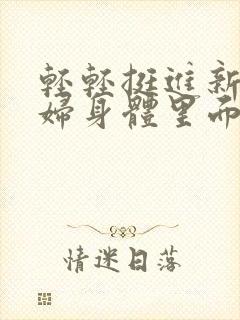 輕輕挺進新
婦身體里而
情迷日落